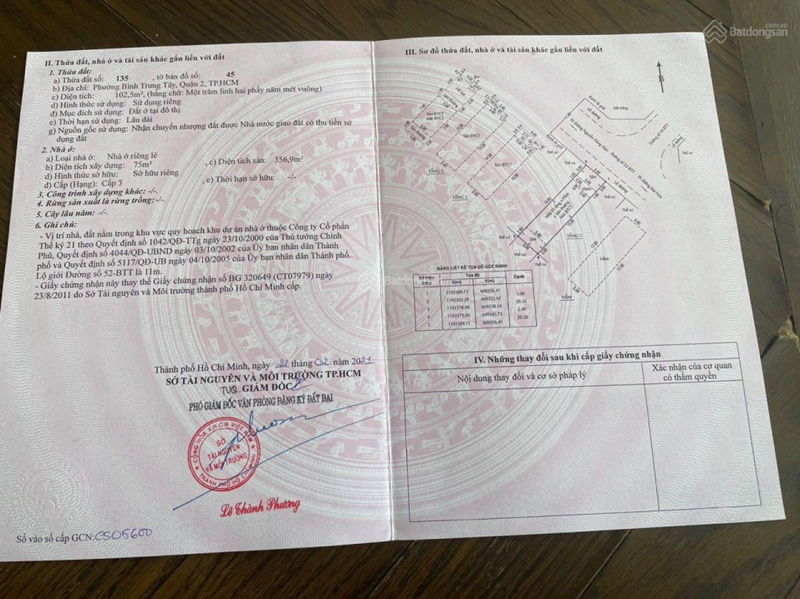 Batdongsan
.com.vn
II. Thửa đất, nhà ở và tài sản khác gắn liền với đất
1. Thửa đất:
a) Thửa đất số: 135 , tờ bản đồ số: 45
b) Địa chỉ: Phường Bình Trưng Tây, Quận 2, TP.HCM
c) Diện tích: 102,5m², (bằng chữ: Một trăm linh hai phẩy năm mét vuông)
d) Hình thức sử dụng: Sử dụng riêng
đ) Mục đích sử dụng: Đất ở tại đô thị
e) Thời hạn sử dụng: Lâu dài
g) Nguồn gốc sử dụng: Nhận chuyển nhượng đất được Nhà nước giao đất có thu tiền sử
dụng đất
2. Nhà ở:
a) Loại nhà ở: Nhà ở riêng lẻ
b) Diện tích xây dựng: 75m² , c) Diện tích sàn: 356,9m²
d) Hình thức sở hữu: Sở hữu riêng
đ) Cấp (Hạng): Cấp 3 , e) Thời hạn sở hữu: -/-
3. Công trình xây dựng khác: -/-.
4. Rừng sản xuất là rừng trồng: -/-.
5. Cây lâu năm: -/-
6. Ghi chú:
- Vị trí nhà, đất nằm trong khu vực quy hoạch khu dự án nhà ở thuộc Công ty Cổ phần
Thế kỷ 21 theo Quyết định số 1042/QĐ-TTg ngày 23/10/2000 của Thủ tướng Chính
Phủ, Quyết định số 4044/QĐ-UBND ngày 03/10/2002 của Ủy ban nhân dân Thành
phố và Quyết định số 5117/QĐ-UB ngày 04/10/2005 của Ủy ban nhân dân Thành phố.
Lộ giới Đường số 52-BTT là 11m.
- Giấy chứng nhận này thay thế Giấy chứng nhận số BG 320649 (CT07979) ngày
23/8/2011 do Sở Tài nguyên và Môi trường thành phố Hồ Chí Minh cấp.
Thành phố Hồ Chí Minh, ngày 22 tháng 02 năm 2021
SỞ TÀI NGUYÊN VÀ MÔI TRƯỜNG TP.HCM
TUQ. GIÁM ĐỐC
PHÓ GIÁM ĐỐC VĂN PHÒNG ĐĂNG KÝ ĐẤT ĐAI
CỘNG HÒA X.H.C.N VIỆT NAM
SỞ
TÀI NGUYÊN
VÀ MÔI TRƯỜNG
THÀNH PHỐ HỒ CHÍ MINH
Lê Thành Phương
Số vào sổ cấp GCN: CS05600
III. Sơ đồ thửa đất, nhà ở và tài sản khác gắn liền với đất
TẦNG 2
TẦNG 1
HẦM
BẢNG LIỆT KÊ TỌA ĐỘ GÓC RANH
Tọa độ
Cạnh
IV. Những thay đổi sau khi cấp giấy chứng nhận
Nội dung thay đổi và cơ sở pháp lý
Xác nhận của cơ quan
có thẩm quyền
Batdongsan